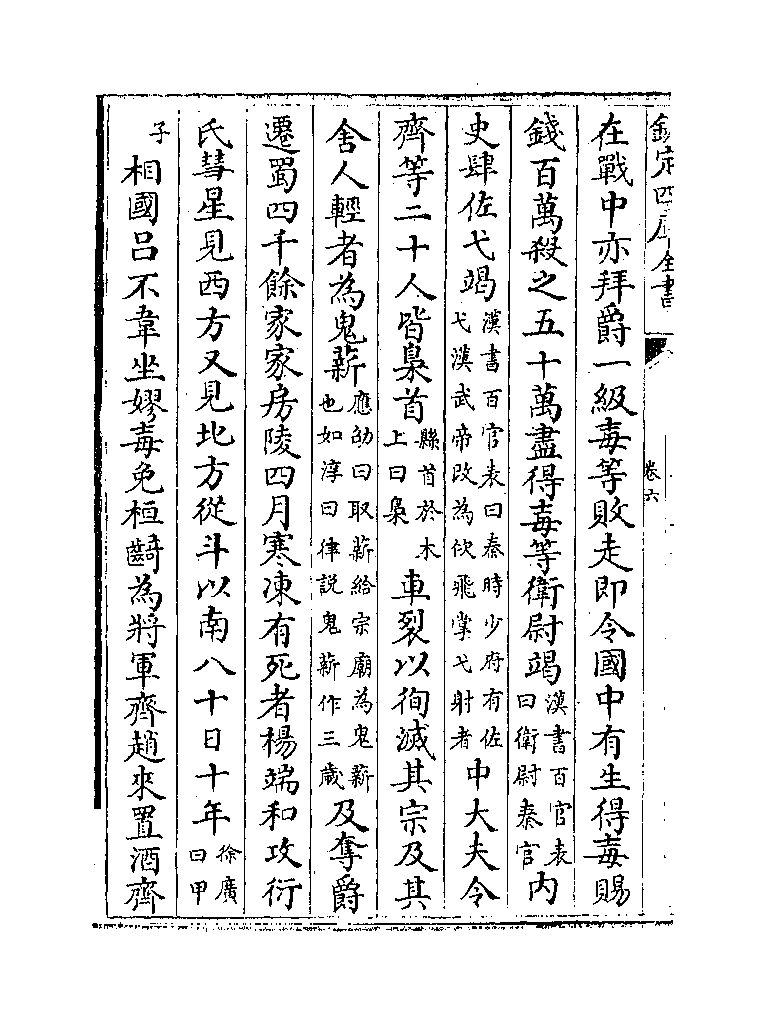 欽定四庫全書
卷六
在戰中亦拜爵一級毐等敗走即令國中有生得毐賜
錢百萬殺之五十萬盡得毐等衛尉竭漢書百官表曰衛尉秦官內
史肆佐弋竭漢書百官表曰秦時少府有佐弋漢武帝改為佽飛掌弋射者中大夫令
齊等二十人皆梟首縣首於木上曰梟車裂以徇滅其宗及其
舍人輕者為鬼薪應劭曰取薪給宗廟為鬼薪也如淳曰律説鬼薪作三歲及奪爵
遷蜀四千餘家家房陵四月寒凍有死者楊端和攻衍
氏彗星見西方又見北方從斗以南八十日十年徐廣曰甲
子相國呂不韋坐嫪毐免桓齮為將軍齊趙來置酒齊